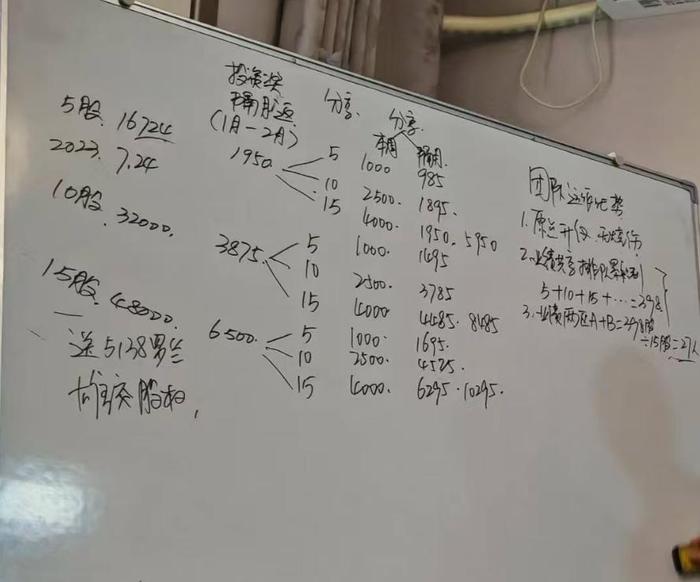 5股. 16724
2023. 7.24
10股. 32000.
15股. 48000.
送5138男兰
投资奖
隔月返
(1月-2月)
分享.
分享.
本周
隔月.
1950.
5
1000
985
10
2500.
1895.
15
4000.
1950. 5950
3875.
5
1000.
1495
10
2500.
3785
15
4000
4485. 8485
6500.
5
1000.
1695.
10
2500.
4525.
15
4000.
6295. 10295.
团队运作优势
1.
2.
5+10+15+…=398
3. 业绩两区A+B=398股
÷15股=27人